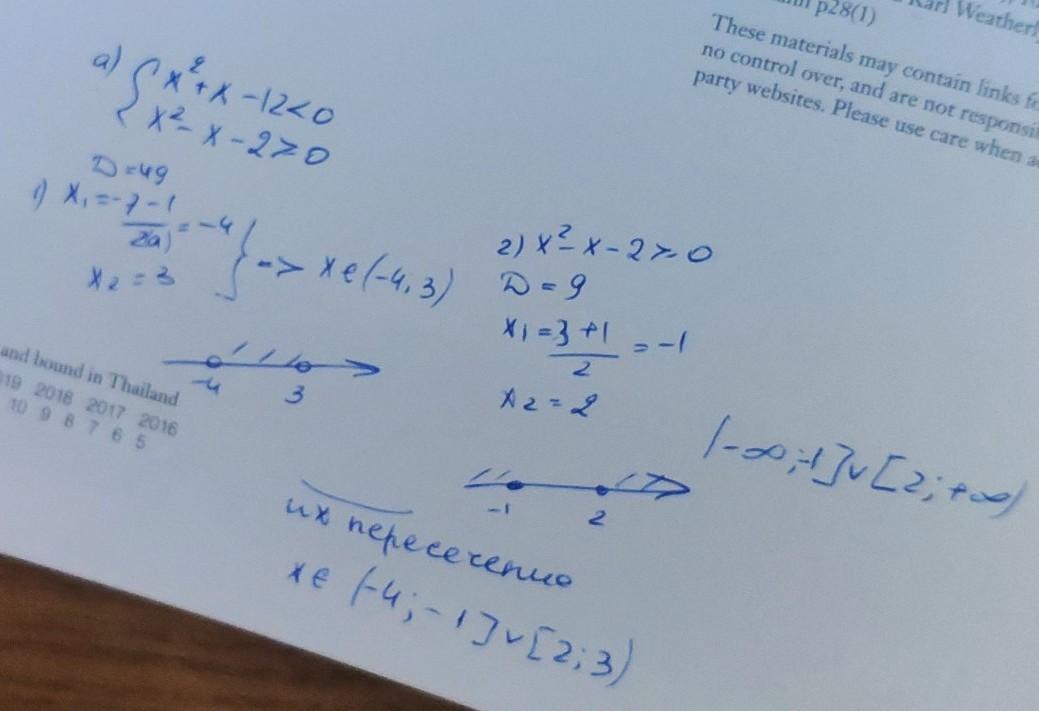 p28(1)
Karl Weatherl
These materials may contain links f
no control over, and are not responsi
party websites. Please use care when a
а) { x² + x - 12 < 0
x² - x - 2 ≥ 0
D = 49
1) x₁ = -7-1 / 2a = -4
x₂ = 3
} => x ∈ (-4, 3)
-4 3
2) x² - x - 2 ≥ 0
D = 9
x₁ = 3+1 / 2 = -1
x₂ = 2
-1 2
(-∞; -1] ∪ [2; +∞)
and bound in Thailand
019 2018 2017 2016
10 9 8 7 6 5
их пересечение
x ∈ (-4; -1] ∪ [2; 3)